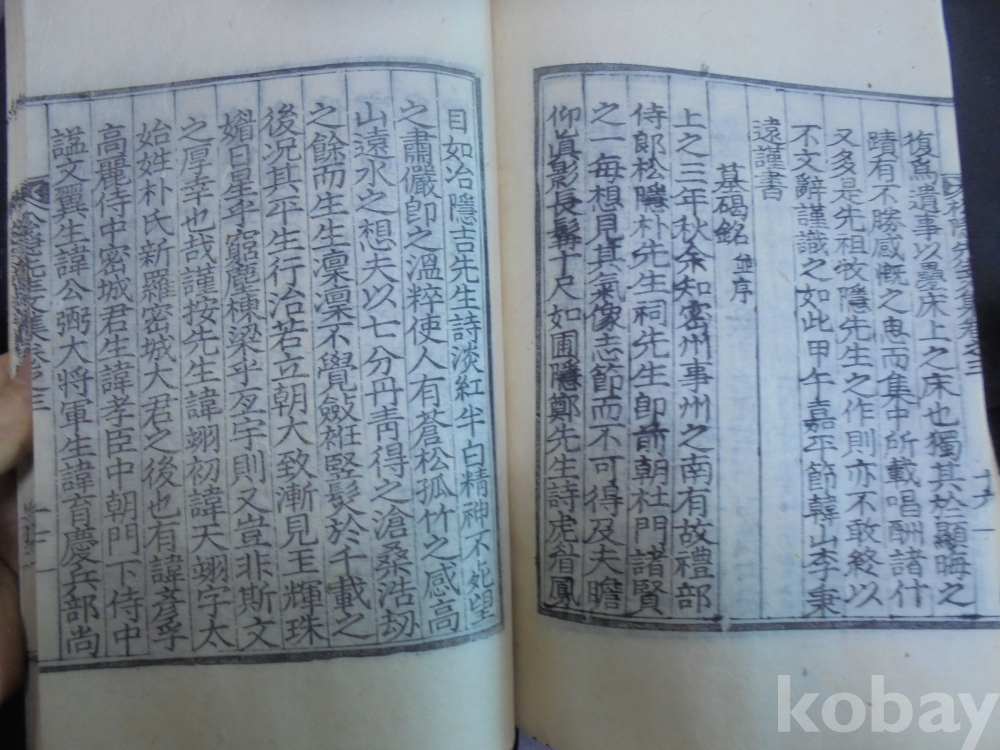 復爲遺事以疊床上之床也獨其於顯晦之
蹟有不勝感慨之思而集中所載唱酬諸什
又多是先祖牧隱先生之作則亦不敢終以
不文辭謹識之如此甲午嘉平節韓山李秉
遠謹書
墓碣銘 並序
上之三年秋余知密州事州之南有故禮部
侍郎松隱朴先生祠先生卽前朝杜門諸賢
之一每想見其氣像志節而不可得及夫瞻
仰眞影長髯十尺如圃隱鄭先生詩虎眉鳳
目如冶隱吉先生詩淡紅半白精神不死望
之肅儼卽之溫粹使人有蒼松孤竹之感高
山遠水之想夫以七分丹靑得之滄桑浩劫
之餘而生生凜凜不覺斂袵竪髮於千載之
後况其平生行治若立朝大致漸見玉輝珠
媚日星乎窮塵棟梁乎亥宇則又豈非斯文
之厚幸也哉謹按先生諱翊初諱天翊字太
始姓朴氏新羅密城大君之後也有諱彦孚
高麗侍中密城君生諱孝臣中朝門下侍中
諡文翼生諱公弼大將軍生諱育慶兵部尚
kobay